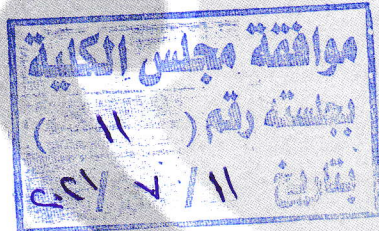 موافقة مجلس الكلية
بجلسته رقم ( ١١ )
بتاريخ ١١ / ٧ / ٢٠٢١